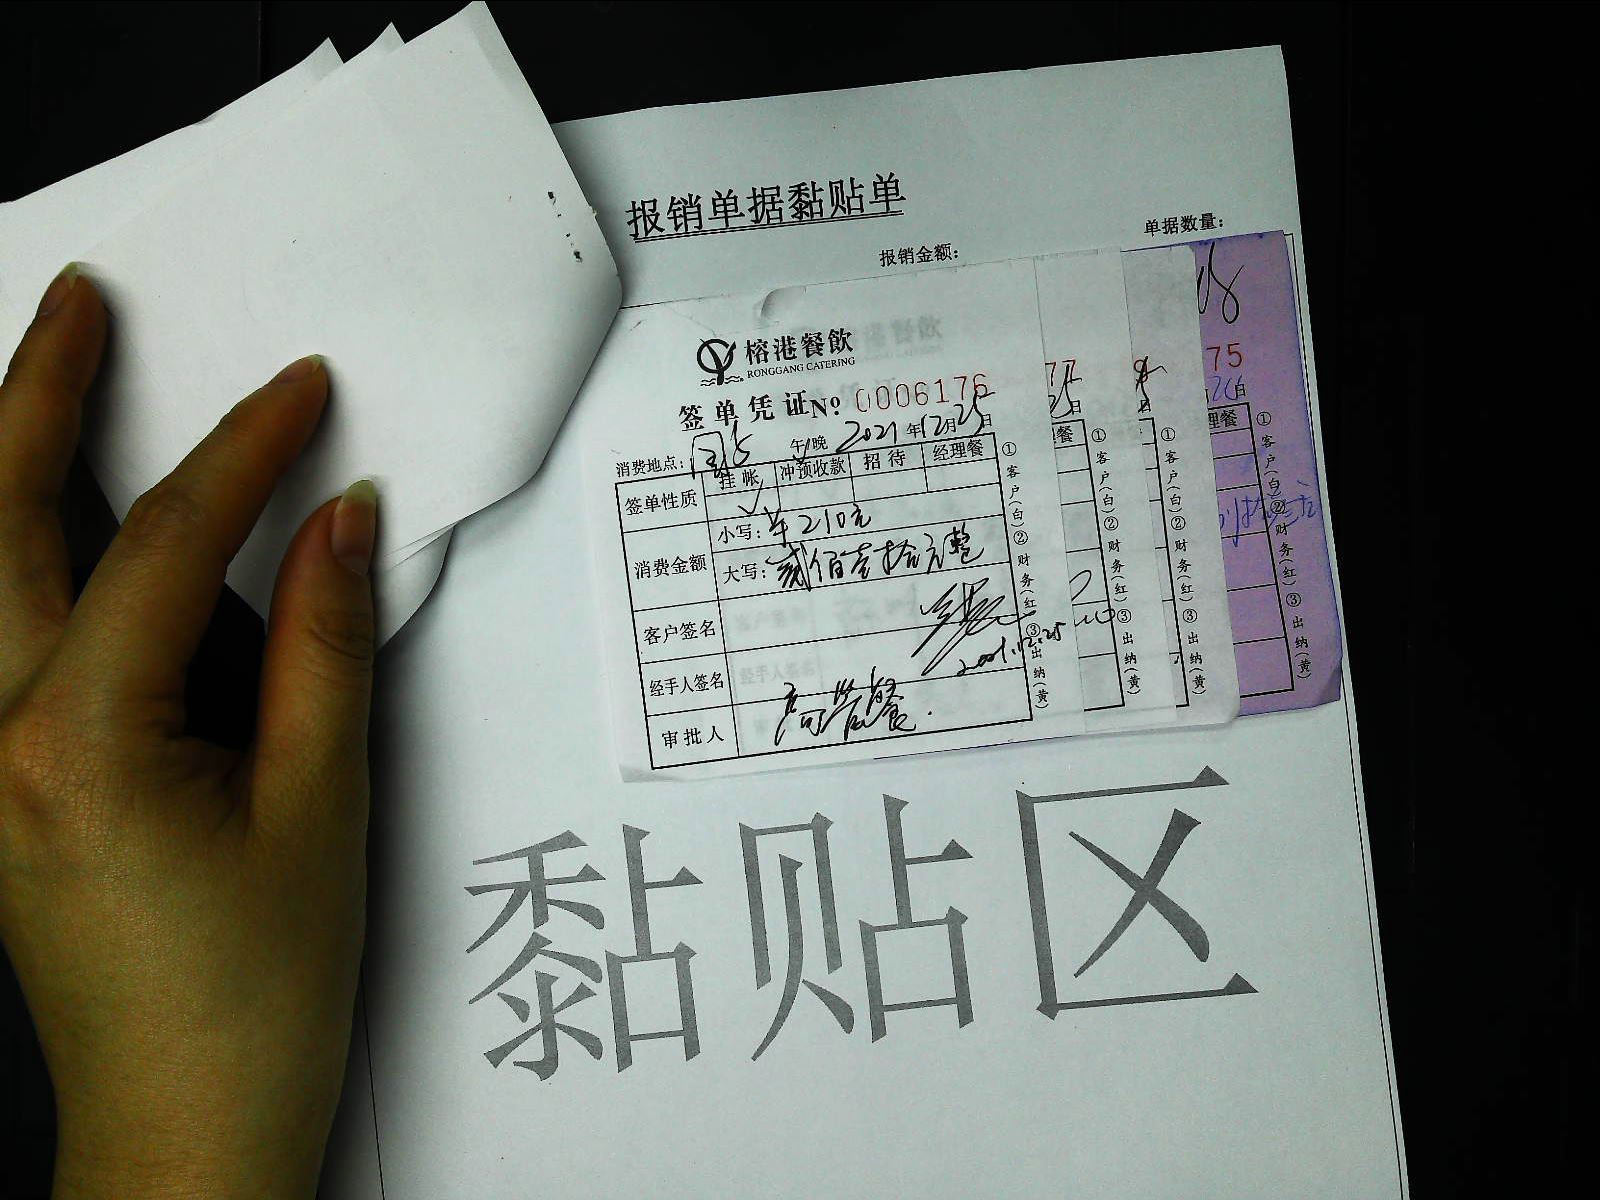 报销单据黏贴单
单据数量：
报销金额：
榕港餐飲
RONGGANG CATERING
签单凭证No 0006176
消费地点： 午/晚 2021年12月25日
签单性质 挂帐 冲预收款 招待 经理餐
消费金额 小写：¥210元
大写：贰佰壹拾元整
客户签名
2021.12.25
经手人签名
审批人 高管餐.
①客户(白)②财务(红)③出纳(黄)
77
25日
餐
①客户(白)②财务(红)③出纳(黄)
日
①客户(白)②财务(红)③出纳(黄)
75
26日
理餐
①客户(白)②财务(红)③出纳(黄)
黏贴区